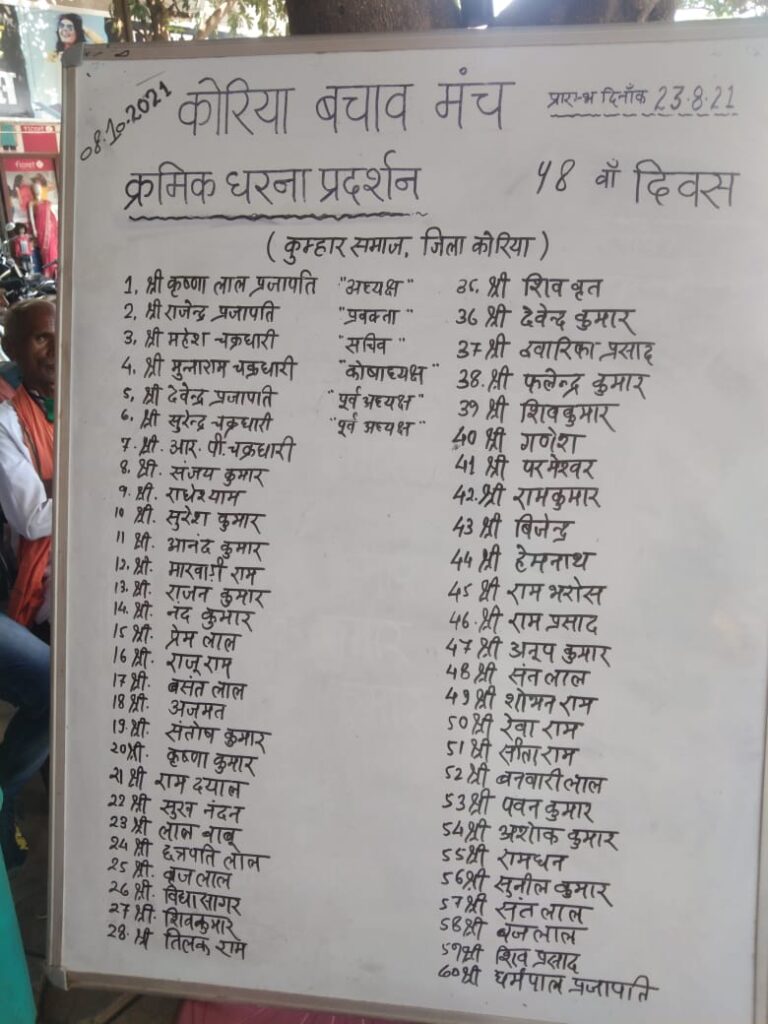 08.10.2021
कोरिया बचाव मंच
प्रारम्भ दिनाँक 23.8.21
क्रमिक धरना प्रदर्शन
48 वाँ दिवस
(कुम्हार समाज, जिला कोरिया)
1. श्री कृष्णा लाल प्रजापति "अध्यक्ष"
2. श्री राजेन्द्र प्रजापति "प्रवक्ता"
3. श्री महेश चक्रधारी "सचिव"
4. श्री मुन्नाराम चक्रधारी "कोषाध्यक्ष"
5. श्री देवेन्द्र प्रजापति "पूर्व अध्यक्ष"
6. श्री सुरेन्द्र चक्रधारी "पूर्व अध्यक्ष"
7. श्री. आर. पी. चक्रधारी
8. श्री. संजय कुमार
9. श्री. राधेश्याम
10 श्री. सुरेश कुमार
11 श्री. आनंद कुमार
12. श्री. मारवाड़ी राम
13. श्री. राजन कुमार
14. श्री. नंद कुमार
15 श्री. प्रेम लाल
16 श्री. राजू राम
17 श्री. बसंत लाल
18 श्री. अजमत
19 श्री. संतोष कुमार
20 श्री. कृष्णा कुमार
21 श्री राम दयाल
22 श्री सुख नंदन
23 श्री लाल बाबू
24 श्री छत्रपति लाल
25 श्री. बृज लाल
26 श्री. विद्यासागर
27 श्री. शिवकुमार
28. श्री तिलक राम
35. श्री शिव बृत
36 श्री देवेन्द कुमार
37 श्री द्वारिका प्रसाद
38. श्री फलेन्द्र कुमार
39 श्री शिवकुमार
40 श्री गणेश
41 श्री परमेश्वर
42. श्री रामकुमार
43 श्री बिजेन्द्र
44 श्री हेमनाथ
45 श्री राम भरोस
46. श्री राम प्रसाद
47 श्री अनूप कुमार
48 श्री संत लाल
49 श्री शोभन राम
50 श्री रेवा राम
51 श्री सीता राम
52 श्री बनवारी लाल
53 श्री पवन कुमार
54 श्री अशोक कुमार
55 श्री रामधन
56 श्री सुनील कुमार
57 श्री संत लाल
58 श्री बृज लाल
59 श्री शिव प्रसाद
60 श्री धर्मपाल प्रजापति